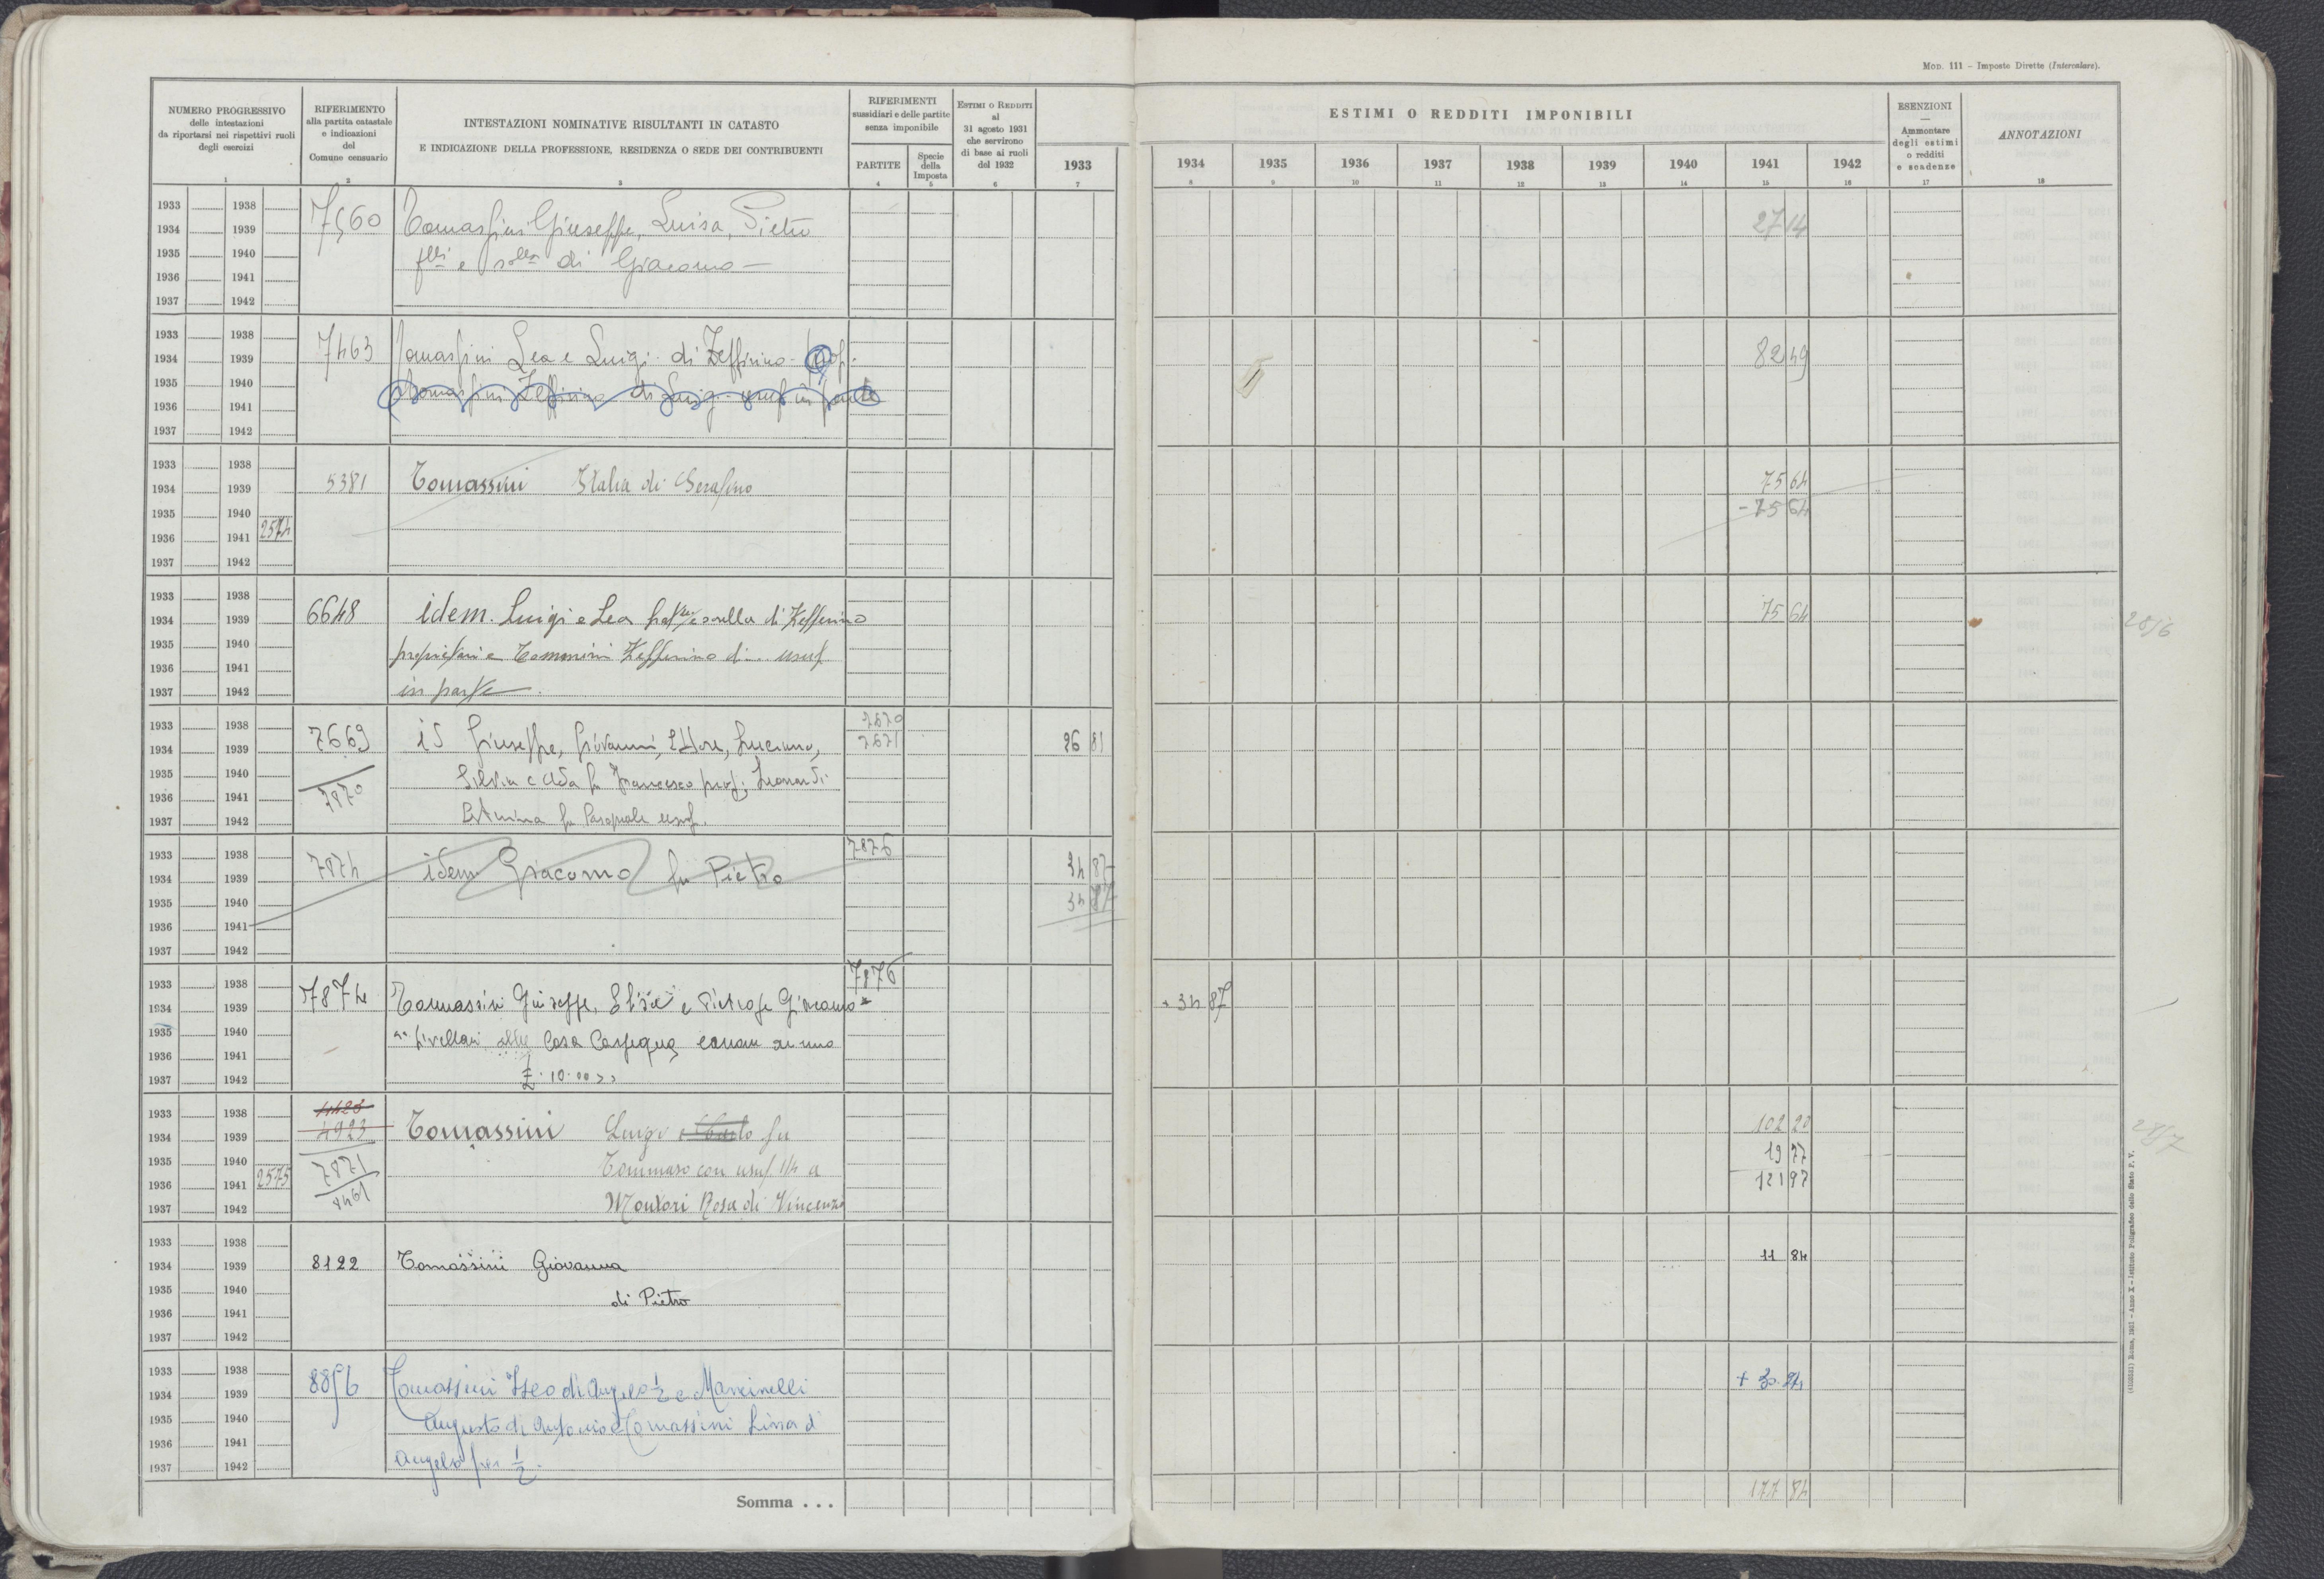 MOD. 111 – Imposte Dirette (Intercalare).
NUMERO PROGRESSIVO
delle intestazioni
da riportarsi nei rispettivi ruoli
degli esercizi
1
RIFERIMENTO
alla partita catastale
e indicazioni
del
Comune censuario
2
INTESTAZIONI NOMINATIVE RISULTANTI IN CATASTO
E INDICAZIONE DELLA PROFESSIONE, RESIDENZA O SEDE DEI CONTRIBUENTI
3
RIFERIMENTI
sussidiari e delle partite
senza imponibile
PARTITE
4
Specie
della
Imposta
5
ESTIMI O REDDITI
al
31 agosto 1931
che servirono
di base ai ruoli
del 1932
6
ESTIMI O REDDITI IMPONIBILI
1933 1934 1935 1936 1937 1938 1939 1940 1941 1942
7 8 9 10 11 12 13 14 15 16
ESENZIONI
—
Ammontare
degli estimi
o redditi
e scadenze
17
ANNOTAZIONI
18
1933 1938
1934 1939 Tomassini Giuseppe, Luisa, Pietro 27 14
1935 1940 flli e solla di Giacomo —
1936 1941
1937 1942
1933 1938
1934 1939 7463 Tomassini Lea e Luigi di Zeffirino - prop. 82 49
1935 1940 Tomassini Zeffirino di Luigi usuf in parte
1936 1941
1937 1942
1933 1938
1934 1939 5381 Tomassini Italia di Serafino 75 64
1935 1940 - 75 64
1936 1941 2574
1937 1942
1933 1938
1934 1939 6648 idem. Luigi e Lea fratello e sorella di Zefferino 75 64
1935 1940 proprietari e Tommasini Zefferino di .. usuf.
1936 1941 in parte
1937 1942
1933 1938 7670
1934 1939 7669 id Giuseppe, Giovanni, Ettore, Luciano, 7671 26 81
1935 1940 Silvia e Ada fu Francesco prop; Leonardi
1936 1941 7870
1937 1942 fu Pasquale usuf.
1933 1938 7876
1934 1939 7874 idem Giacomo fu Pietro 34 87
1935 1940 34 87
1936 1941
1937 1942
1933 1938 7876
1934 1939 7874 Tomassini Giuseppe, e Pietro fu Giacomo + 34 87
1935 1940 livellari alla Casa canone annuo
1936 1941 £. 10.00
1937 1942
1933 1938
1934 1939 4923 Tomassini Luigi e Carlo fu 102 20
1935 1940 7871 Tommaso con usuf. 1/4 a 19 77
1936 1941 2575 8461 Montori Rosa di Vincenzo 121 97
1937 1942
1933 1938
1934 1939 8122 Tomassini Giovanna 11 84
1935 1940 di Pietro
1936 1941
1937 1942
1933 1938
1934 1939 8856 Tomassini Iseo di Angelo 1/2 e Mancinelli + 30.24
1935 1940 Augusto di Antonio e Tomassini Lina di
1936 1941 Angelo per 1/2.
1937 1942
Somma . . . 177 84
2856
2857
(4103151) Roma, 1931 - Anno X - Istituto Poligrafico dello Stato P. V.